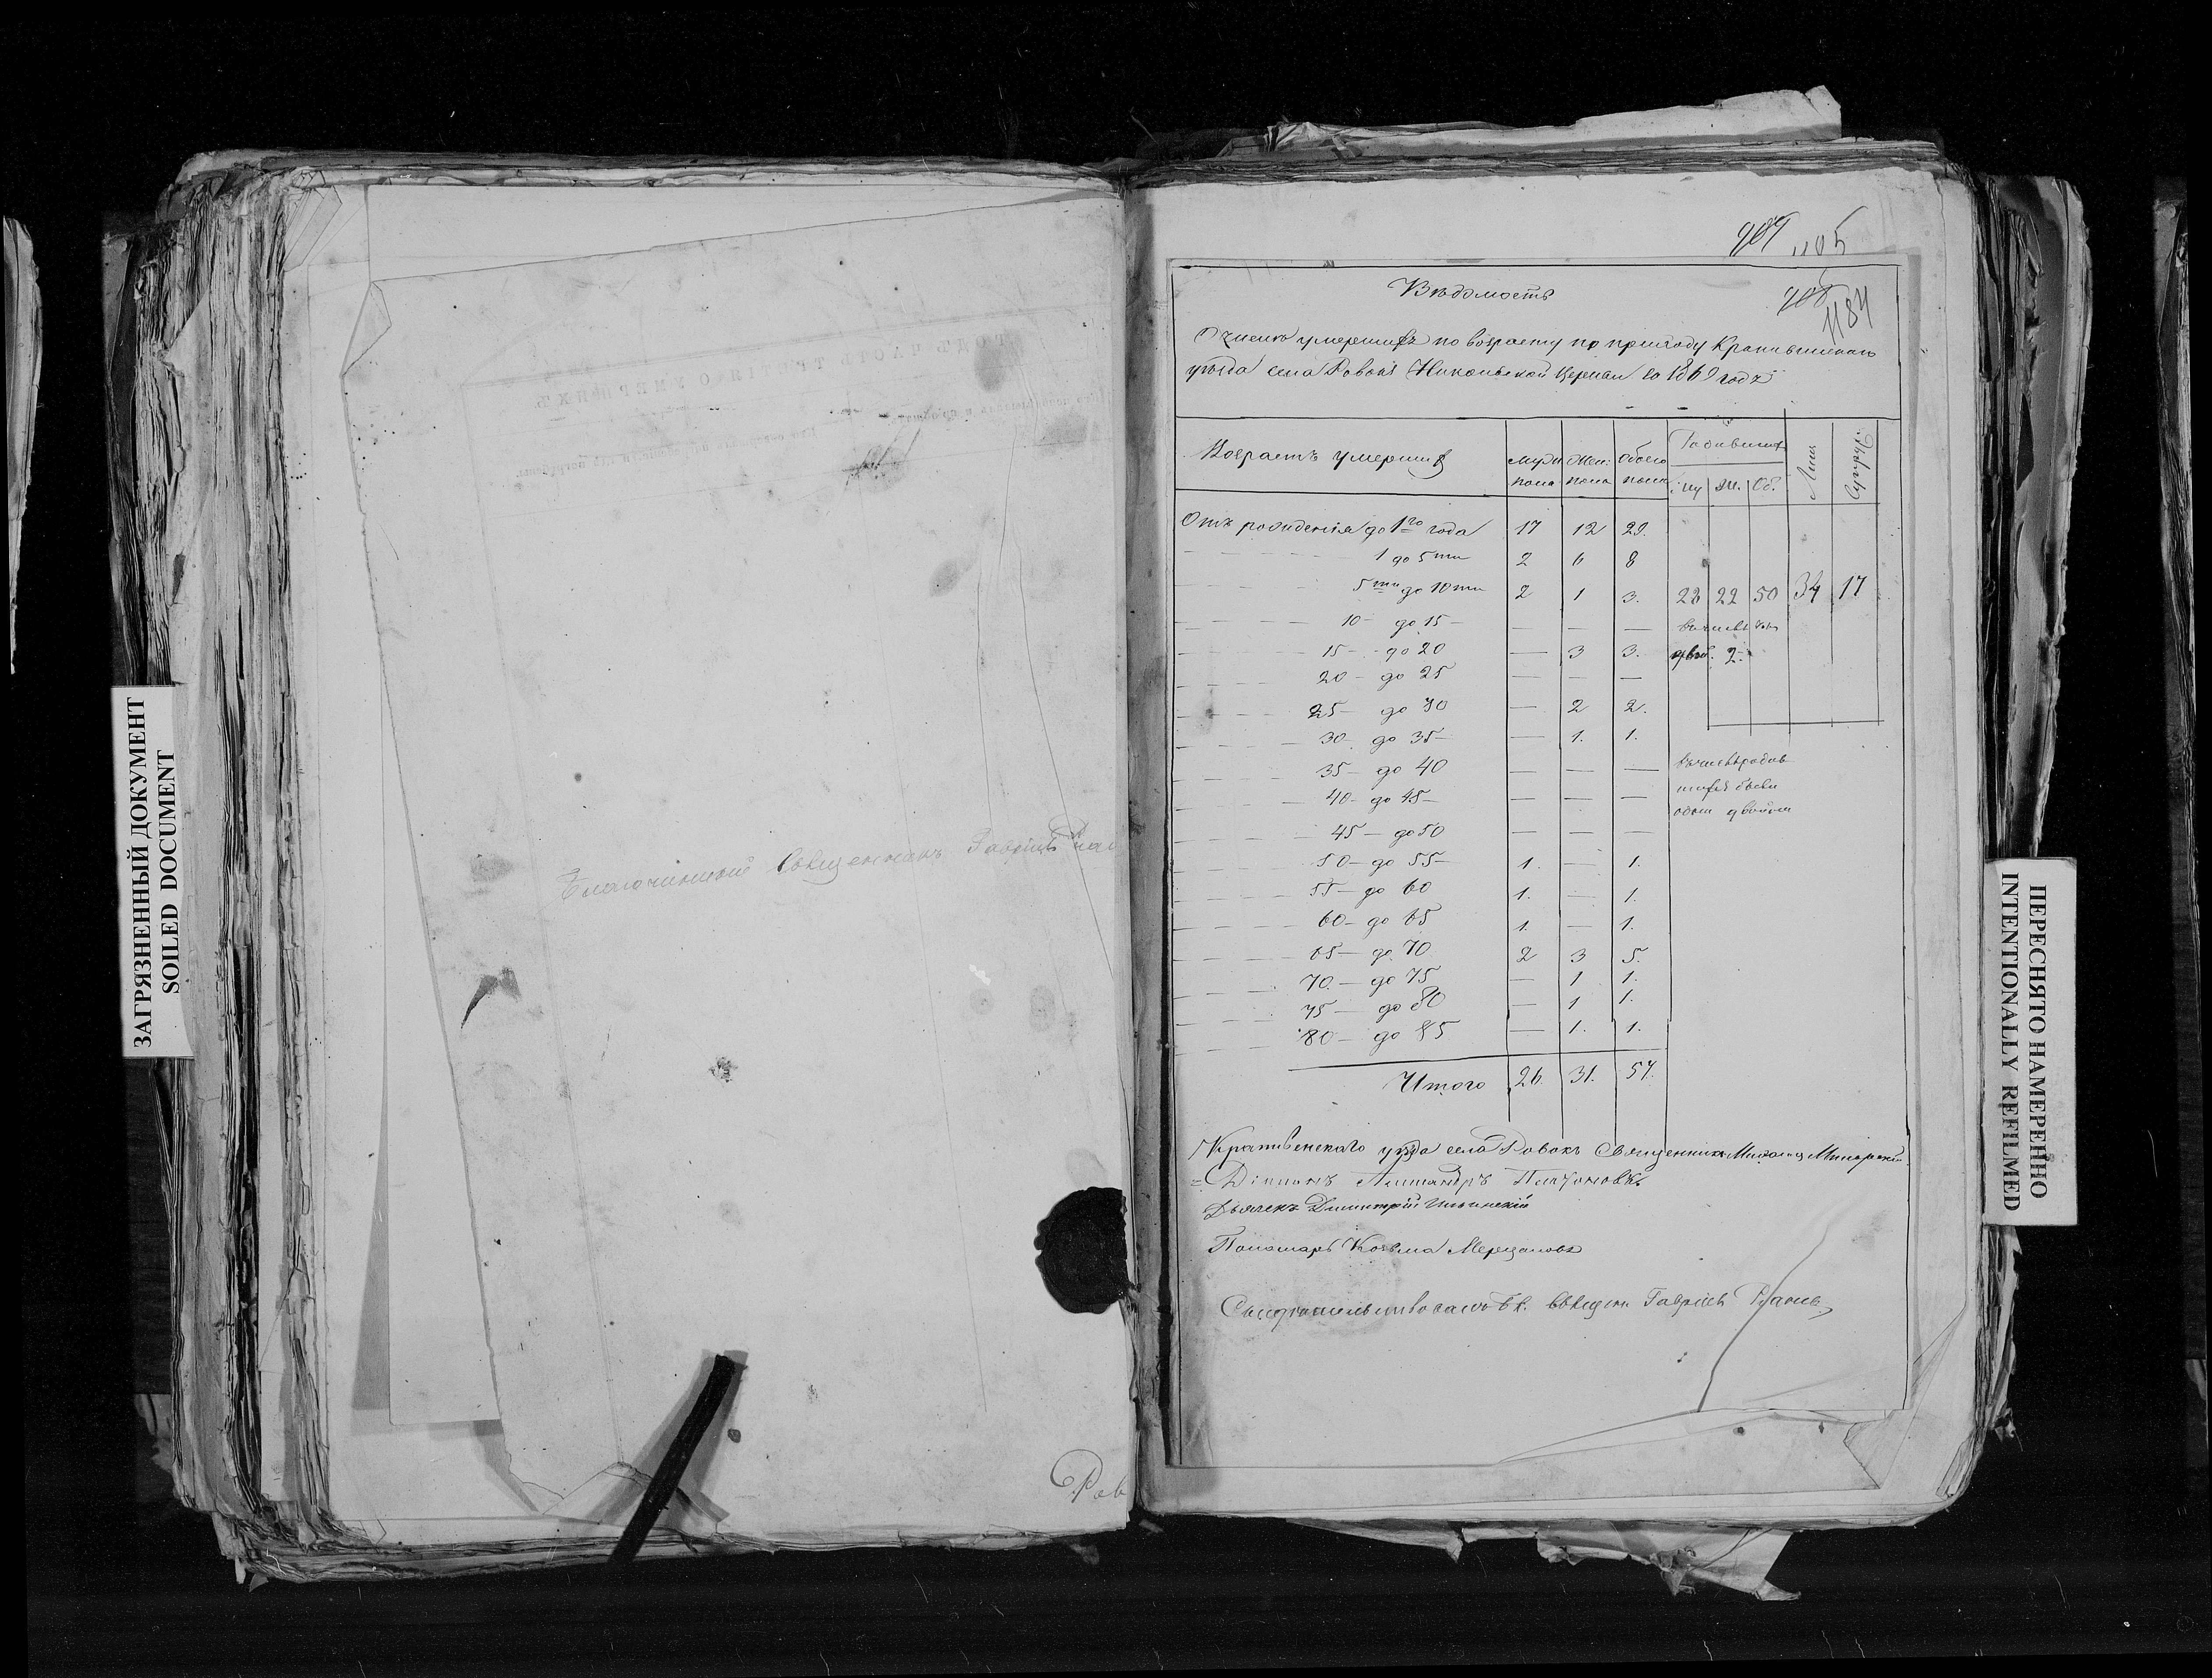 ЗАГРЯЗНЕННЫЙ ДОКУМЕНТ
SOILED DOCUMENT
Благочинный Священникъ Гаврiилъ
Ров
1105
1184
Вѣдомость
О числѣ умершихъ по возрасту по приходу Крапивенскаго
уѣзда села Ровокъ Николаевской Церкви за 1869 годъ
Возрастъ умершихъ Муж: пола Жен: пола Обоего пола Родившихся Му Ж. Об. Лица Супруг:
Отъ рожденiя до 1го года 17 12 29.
1 до 5ти 2 6 8
5ти до 10ти 2 1 3. 28 22 50 34 17
10 до 15 — — —
15 — до 20 — 3 3. 2.
20 — до 25 — — —
25 — до 30 — 2 2.
30 — до 35 — 1. 1.
35 — до 40 — — —
въ числѣ родив
шихся были
одни двойни
40 — до 45 — — —
45 — до 50 — — —
50 — до 55 1. — 1.
55 — до 60 1. — 1.
60 — до 65 1. — 1.
65 — до 70 2 3 5.
70 — до 75 — 1 1.
75 — до 80 — 1 1.
80 — до 85 — 1. 1.
Итого 26. 31. 57.
Крапивенскаго уѣзда села Ровокъ Священникъ
Дiаконъ
Дьячекъ Димитрiй Ильинскiй
Пономарь Козьма Мерцаловъ
Гаврiилъ
ПЕРЕСНЯТО НАМЕРЕННО
INTENTIONALLY REFILMED